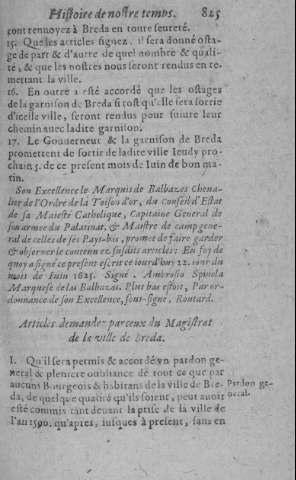 Histoire de nostre temps. 825
ront renuoyez à Breda en toute seureté.
15. Que les articles signez, il sera donné osta-
ge de part & d'autre de quel nombre & quali-
té, & que les nostres nous seront rendus en re-
mettant la ville.
16. En outre a esté accordé que les ostages
de la garnison de Breda si tost qu'elle sera sortie
d'icelle ville, seront rendus pour suiure leur
chemin auec ladite garnison.
17. Le Gouuerneur & la garnison de Breda
promettent de sortir de ladite ville Ieudy pro-
chain 5. de ce present mois de Iuin de bon ma-
tin.
Son Excellence le Marquis de Balbazes Cheua-
lier de l'Ordre de la Toison d'or, du Conseil d'Estat
de sa Maiesté Catholique, Capitaine General de
son armee du Palatinat, & Maistre de camp gene-
ral de celles de ses Pays-bas, promet de faire garder
& obseruer le contenu ez susdits articles: En foy de
quoy a signé ce present escrit ce iourd'huy 22. iour du
mois de Iuin 1625. Signé. Ambrosio Spinola
Marquese de los Balbazes. Plus bas estoit, Par or-
donnance de son Excellence, sous-signé, Routard.
Articles demandez par ceux du Magistrat
de la ville de Breda.
I. Qu'il sera permis & accordé vn pardon ge-
neral & pleniere oubliance de tout ce que par
aucuns Bourgeois & habitans de la ville de Bre- Pardon ge-
da, de quelque qualité qu'ils soient, peut auoir neral.
esté commis tant deuant la prise de la ville de
l'an 1590. qu'apres, iusques à present, sans en